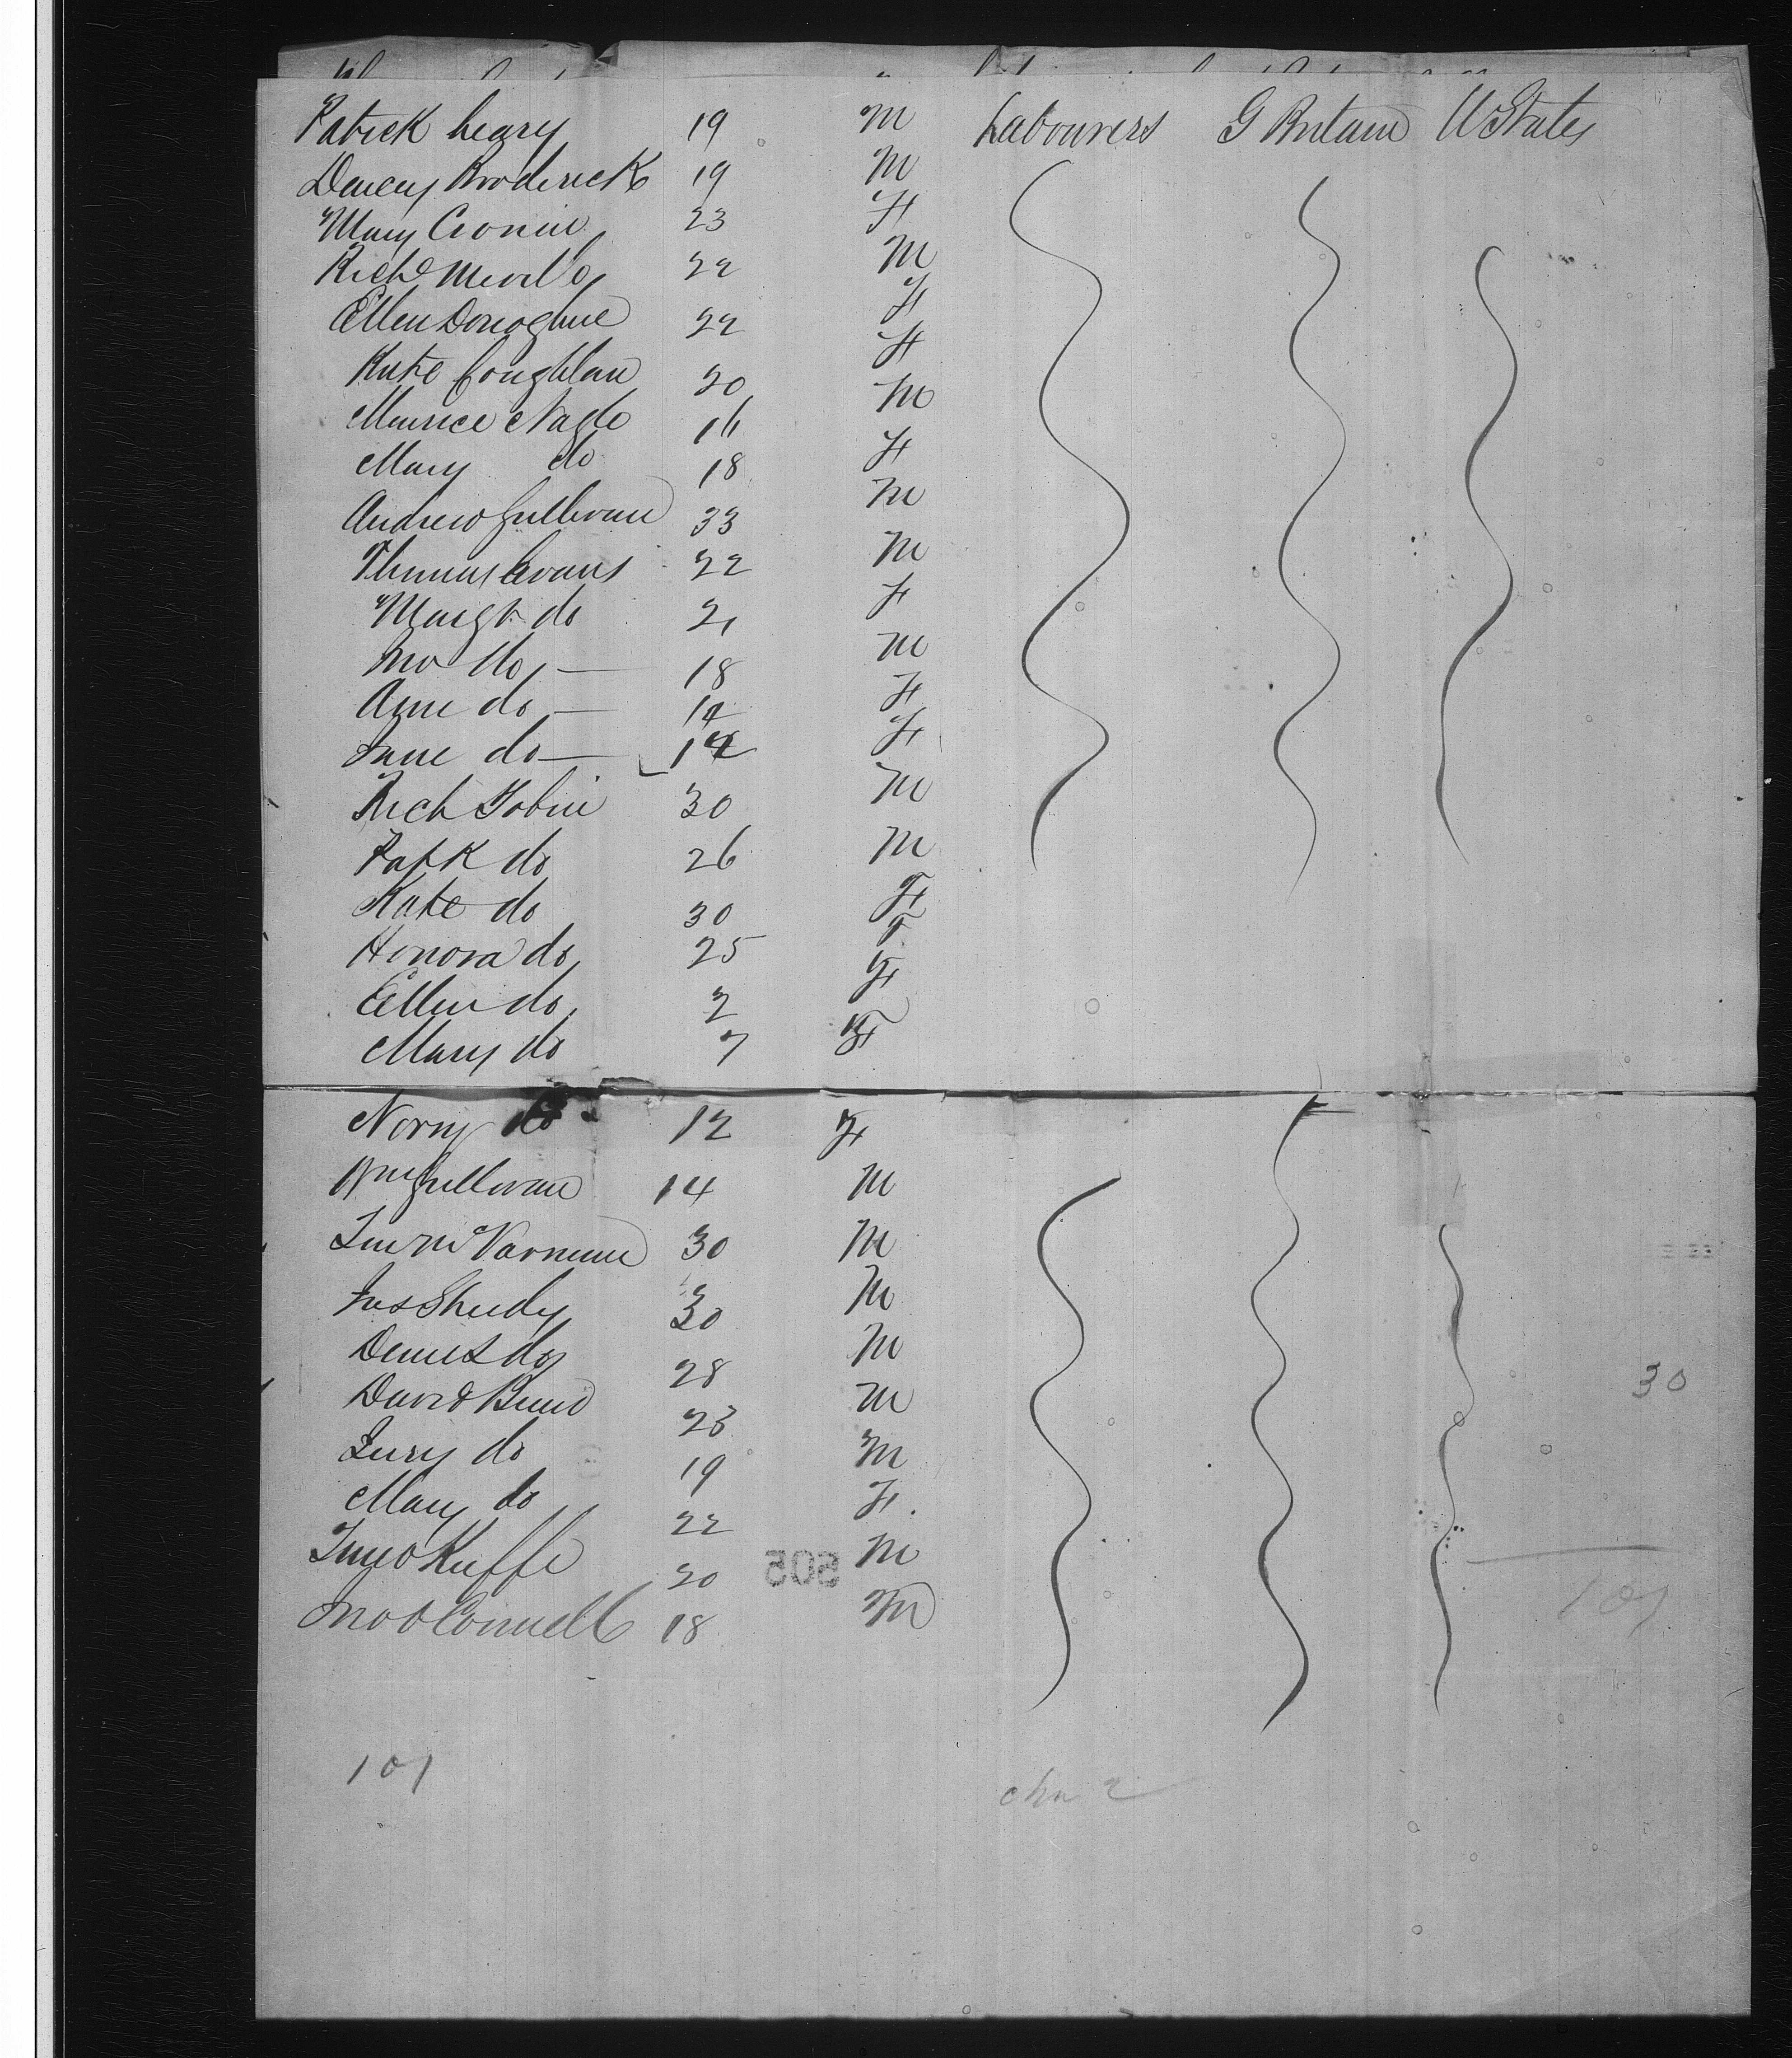 Patrick Leary 19 M Labourers G Britain U States
Darcey Broderick 19 M
Mary Cronin 23 F
Richd 22 M
Ellen Donoghue 22 F
Kate Coughlan 20 F
Maurice Nagle 16 M
Mary do 18 F
Andrew Sullivan 33 M
Thomas Evans 22 M
Margt do 21 F
Jno do 18 M
Anne do 14 F
Jane do 14 F
Rich Tobin 30 M
Patk do 26 M
Kate do 30 F
Honora do 25 F
Ellen do 2 F
Mary do 7 F
Nory do 12 F
Wm Sullivan 14 M
30 M
Jas Sheedy 30 M
Denis do 28 M
30
David 23 M
do 19 M
Mary do 22 F
O Keeffe 20 M
505
Jno O Connell 18 M
101
101
chn 2